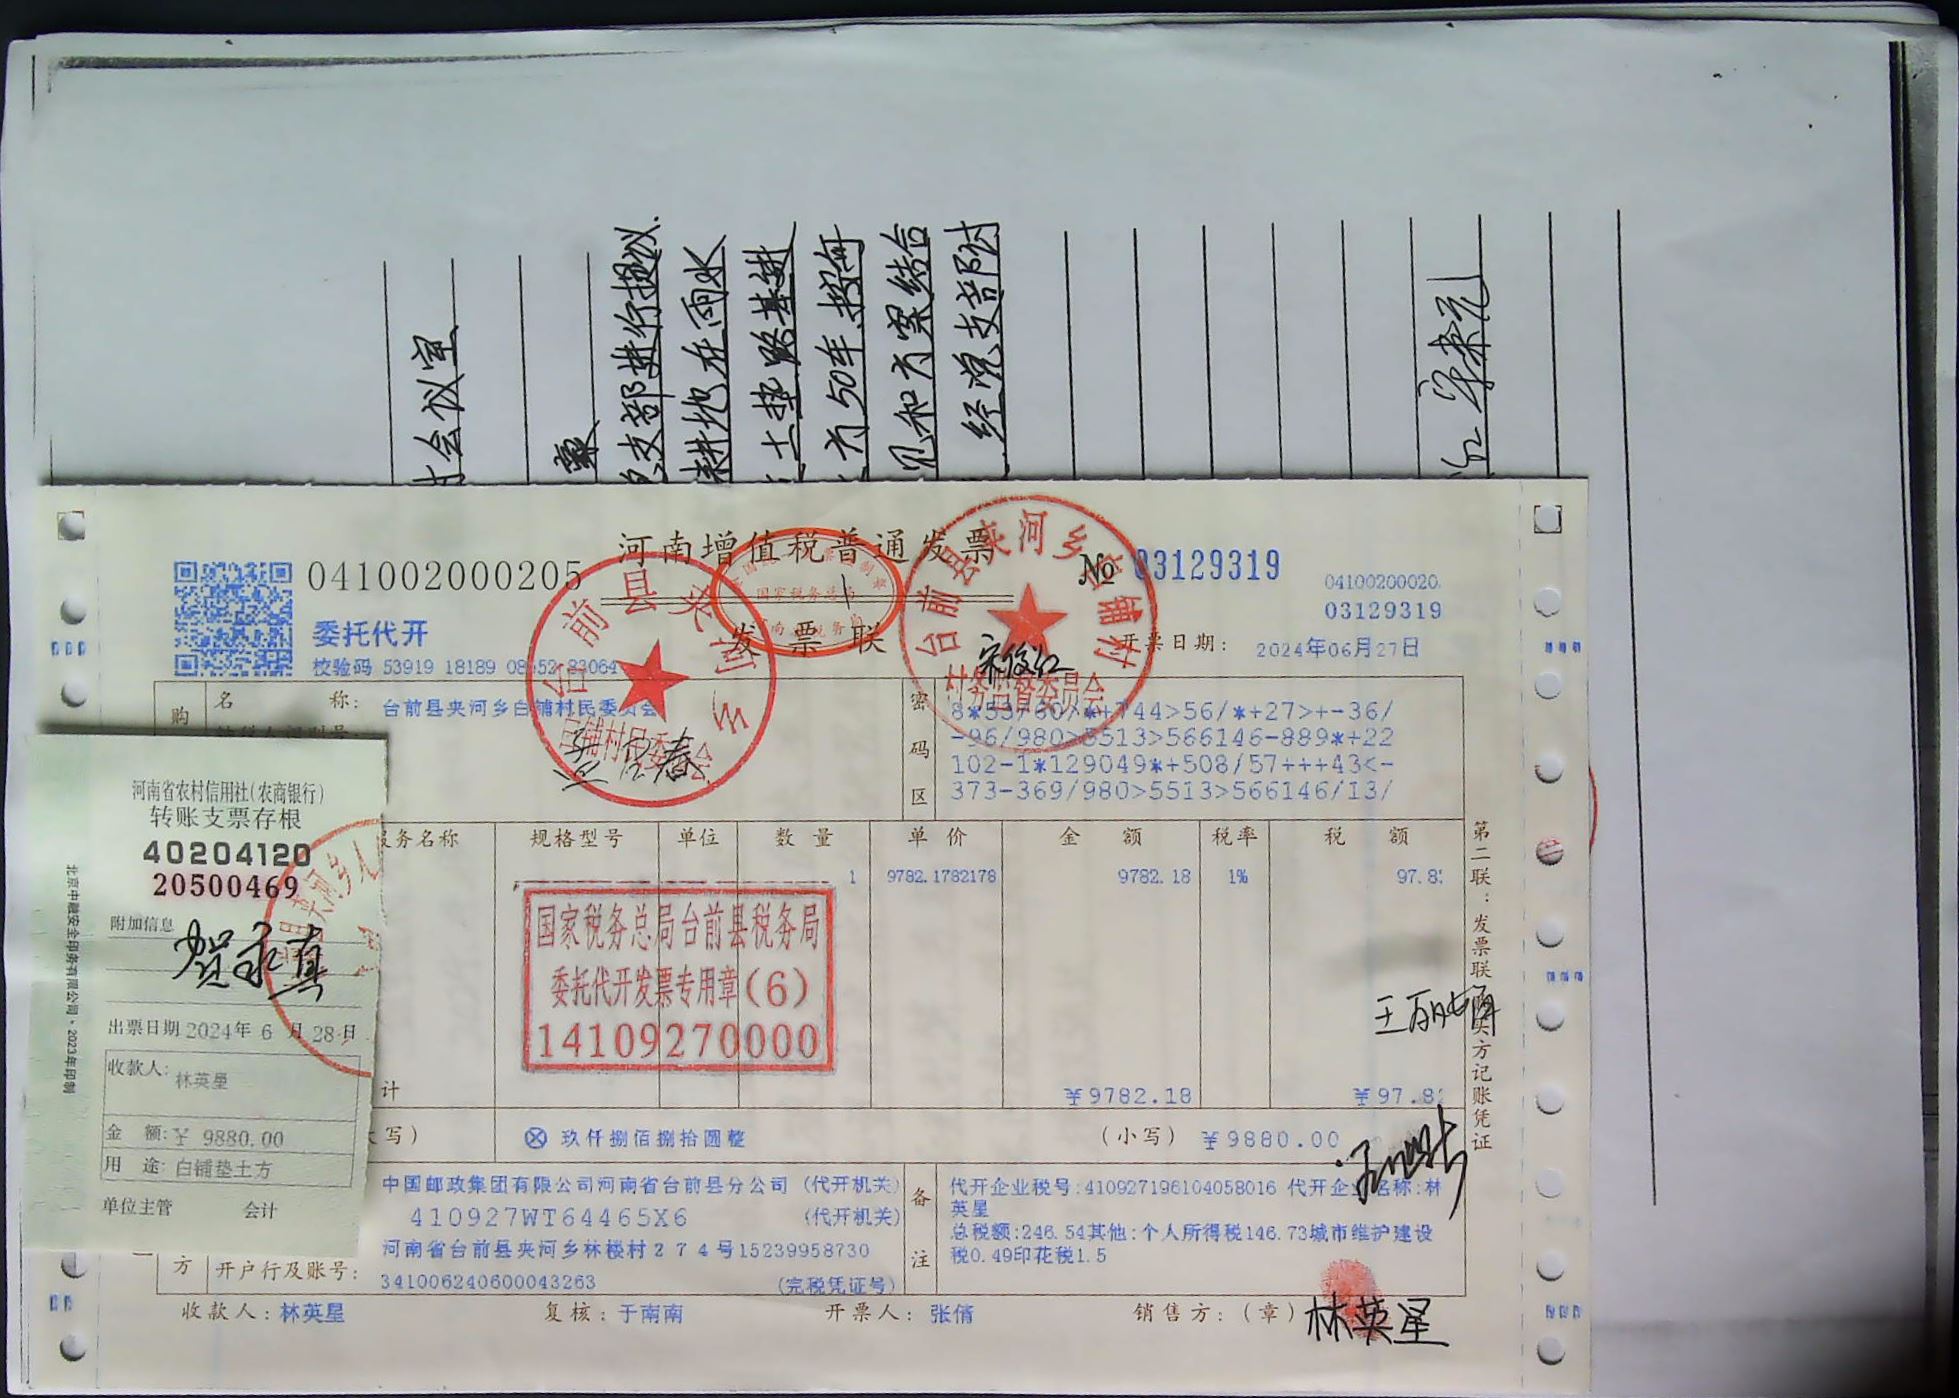 会议室
党支部进行提议.
耕地在雨水
土垫路基进
为50车,按每
见和方案结合
经党支部讨
河南增值税普通发票
041002000205
№ 03129319
04100200020
03129319
委托代开
发票联
开票日期: 2024年06月27日
校验码 53919 18189 08 52 83064
台前县夹河乡
台前县夹河乡白铺村
村务监督委员会
宋俊红
购
名 称: 台前县夹河乡白铺村民委员会
密码区
8*53/60/*+744>56/*+27>+-36/
-96/980>5513>566146-889*+22
102-1*129049*+508/57+++43<-
373-369/980>5513>566146/13/
服务名称 规格型号 单位 数量 单价 金额 税率 税额
1 9782.1782178 9782.18 1% 97.8
国家税务总局台前县税务局
委托代开发票专用章(6)
14109270000
计 ¥9782.18 ¥97.8
写) ⊗ 玖仟捌佰捌拾圆整 (小写) ¥9880.00
中国邮政集团有限公司河南省台前县分公司 (代开机关)
410927WT64465X6 (代开机关)
河南省台前县夹河乡林楼村274号15239958730
方 开户行及账号: 341006240600043263 (完税凭证号)
备注
代开企业税号:410927196104058016 代开企业名称:林
英星
总税额:246.54其他:个人所得税146.73城市维护建设
税0.49印花税1.5
收款人:林英星 复核:于南南 开票人:张倩 销售方:(章)
林英星
第二联:发票联 购买方记账凭证
河南省农村信用社(农商银行)
转账支票存根
40204120
20500469
附加信息
贺永真
出票日期 2024年 6 月 28 日
收款人: 林英星
金 额:¥ 9880.00
用 途: 白铺垫土方
单位主管 会计
北京中融安全印务有限公司·2023年印制